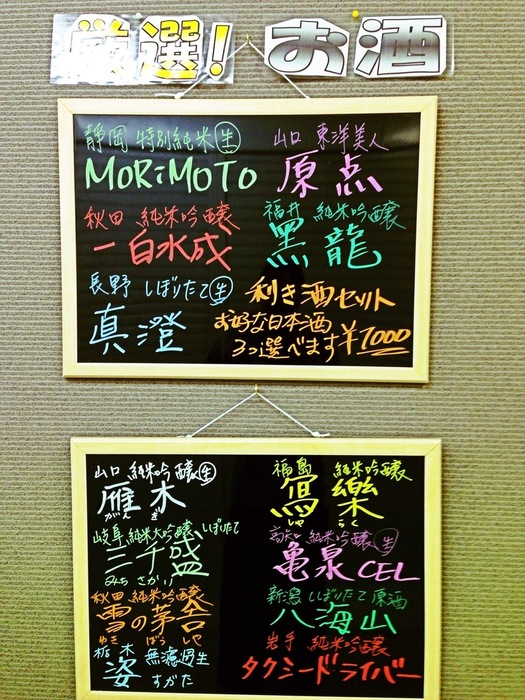 厳選!お酒
静岡 特別純米 生
MORiMOTO
秋田 純米吟醸
一白水成
長野 しぼりたて 生
真澄
山口 東洋美人
原点
福井 純米吟醸
黒龍
利き酒セット
お好な日本酒
3つ選べます ¥1000
山口 純米吟醸 生
雁木
がんぎ
岐阜 純米大吟醸 しぼりたて
三千盛
みちさかり
秋田 純米吟醸
雪の茅舎
ゆきのぼうしゃ
栃木 無濾過生
姿 すがた
福島 純米吟醸
寫樂
しゃらく
高知 純米吟醸 生
亀泉 CEL
新潟 しぼりたて原酒
八海山
岩手 純米吟醸
タクシードライバー